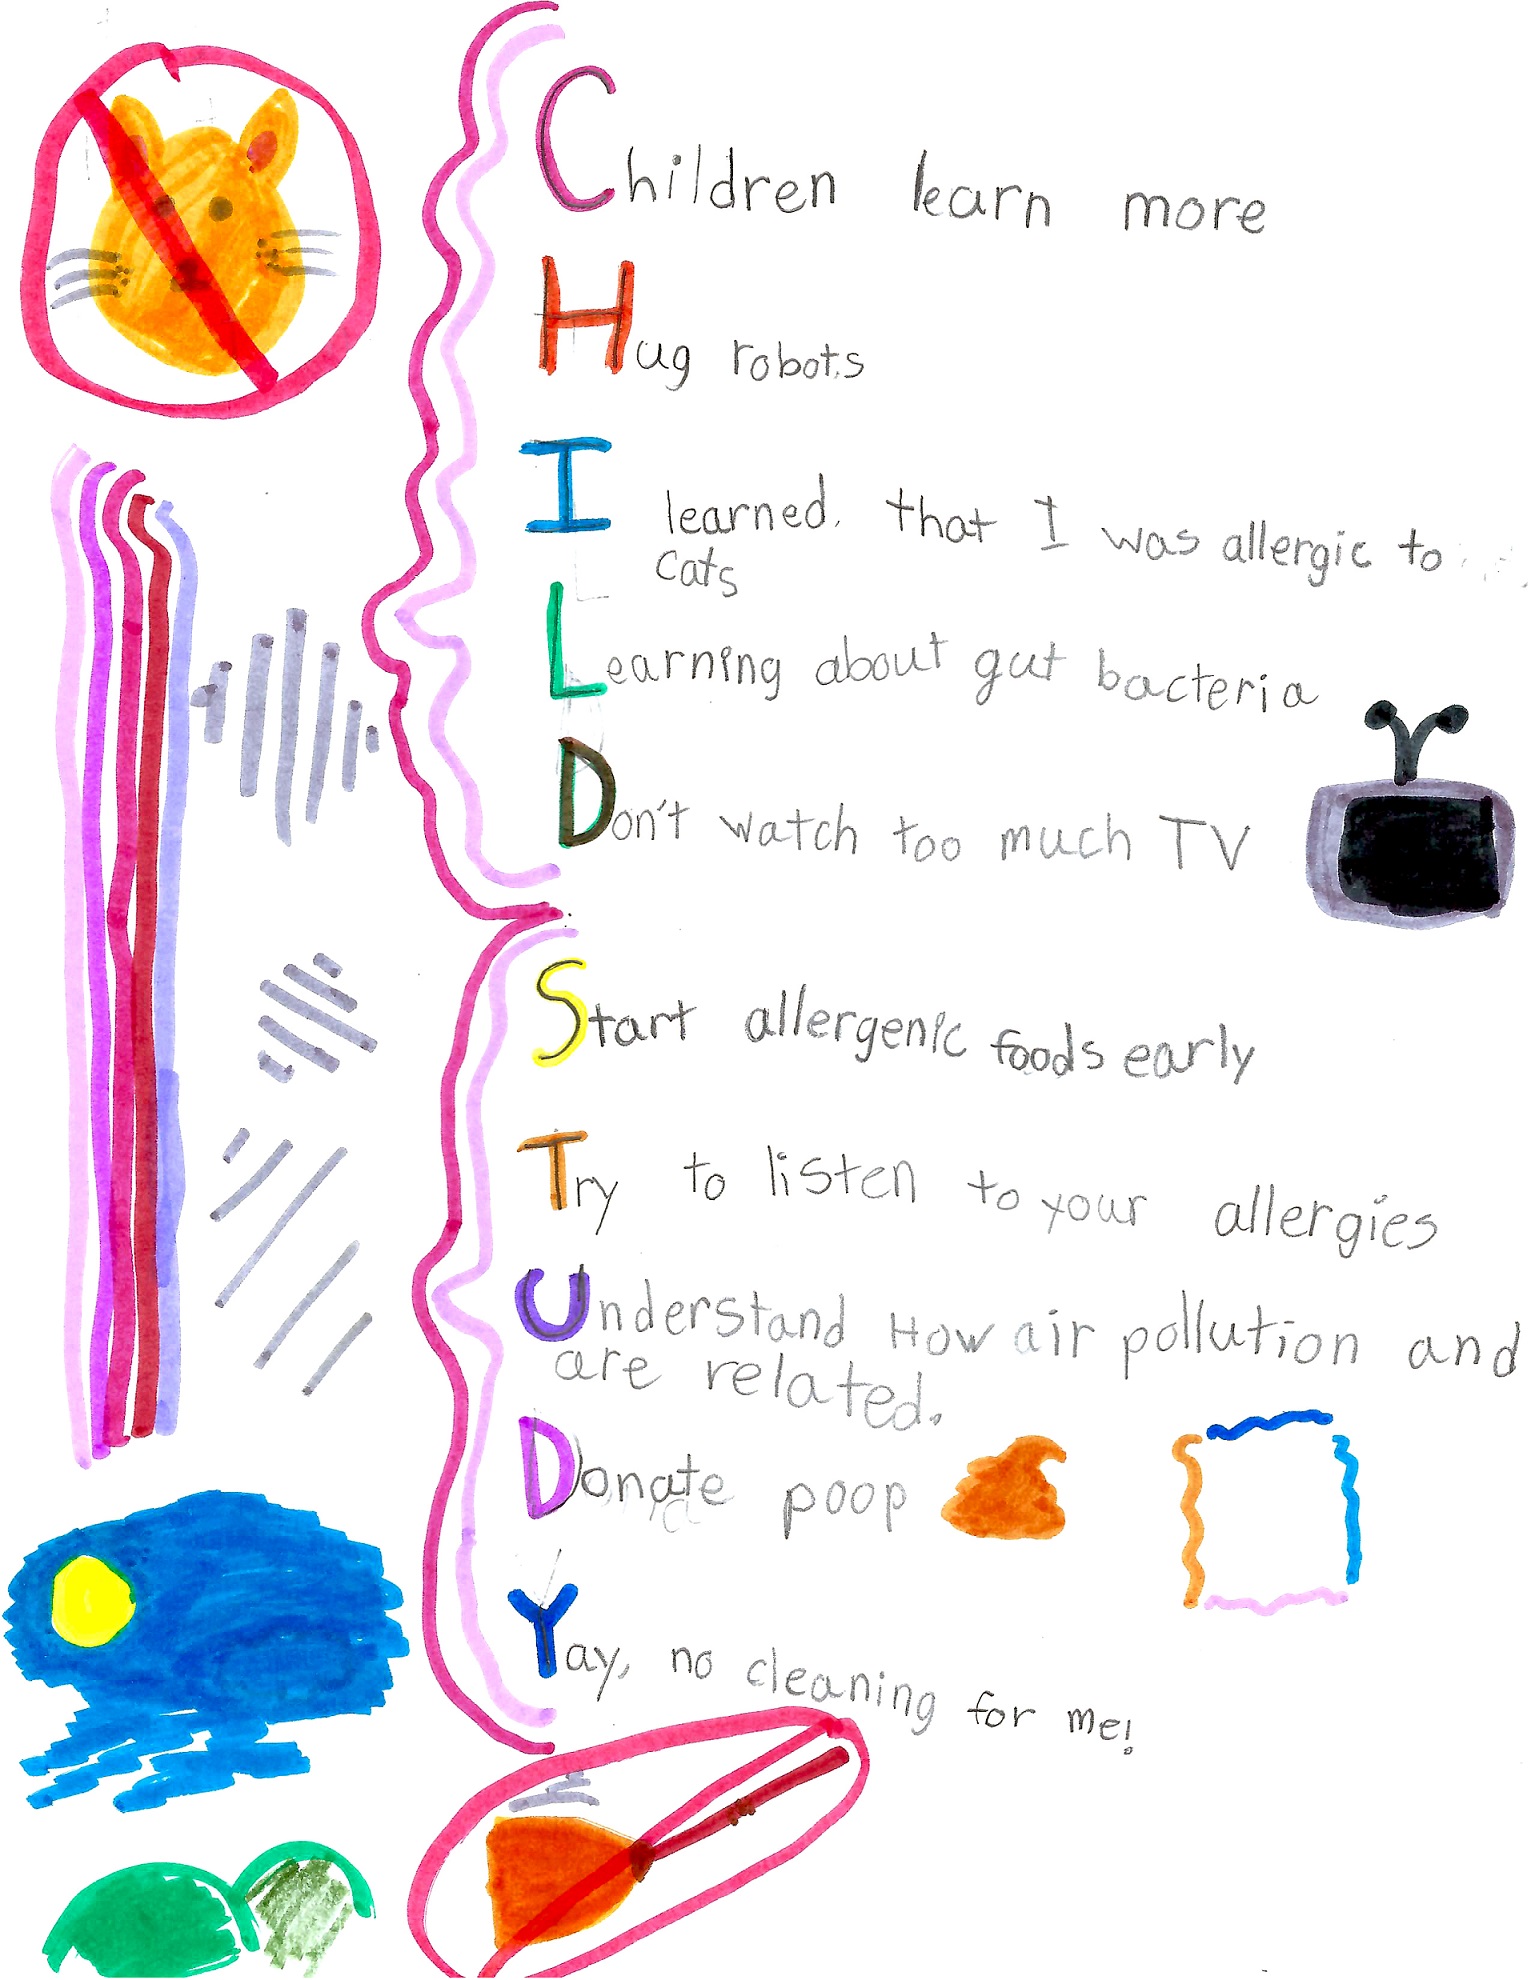 Children learn more
Hug robots
I learned that I was allergic to
cats
Learning about gut bacteria
Don't watch too much TV
Start allergenic foods early
Try to listen to your allergies
Understand How air pollution and
are related.
Donate poop
Yay, no cleaning for me!